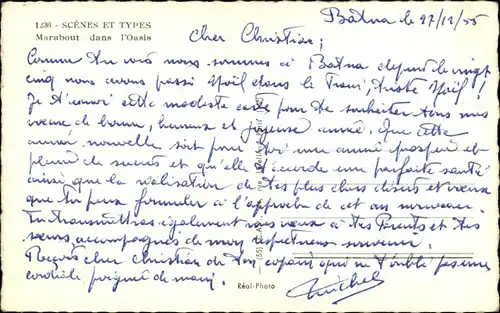 1236 - SCÈNES ET TYPES
Marabout dans l'Oasis
Batna le 27/12/55
Cher Christian,
Comme tu vois nous sommes à Batna depuis le vingt
cinq nous avons passé Noël dans le Train, triste Noël !
Je t'envoi cette modeste carte pour te souhaiter tous mes
voeux de bonne, heureuse et joyeuse année. Que cette
année nouvelle soit pour toi une année prospère et
pleine de succès et qu'elle t'accorde une parfaite santé
ainsi que la réalisation de tes plus chers désirs et voeux
que tu peux formuler à l'approche de cet an nouveau.
Tu transmettras également mes voeux à tes Parents et tes
soeurs, accompagnés de mon respectueux souvenir.
Reçois cher Christian de ton copain qui ne t'oublie pas une
cordiale poignée de main.
Michel
Réal-Photo